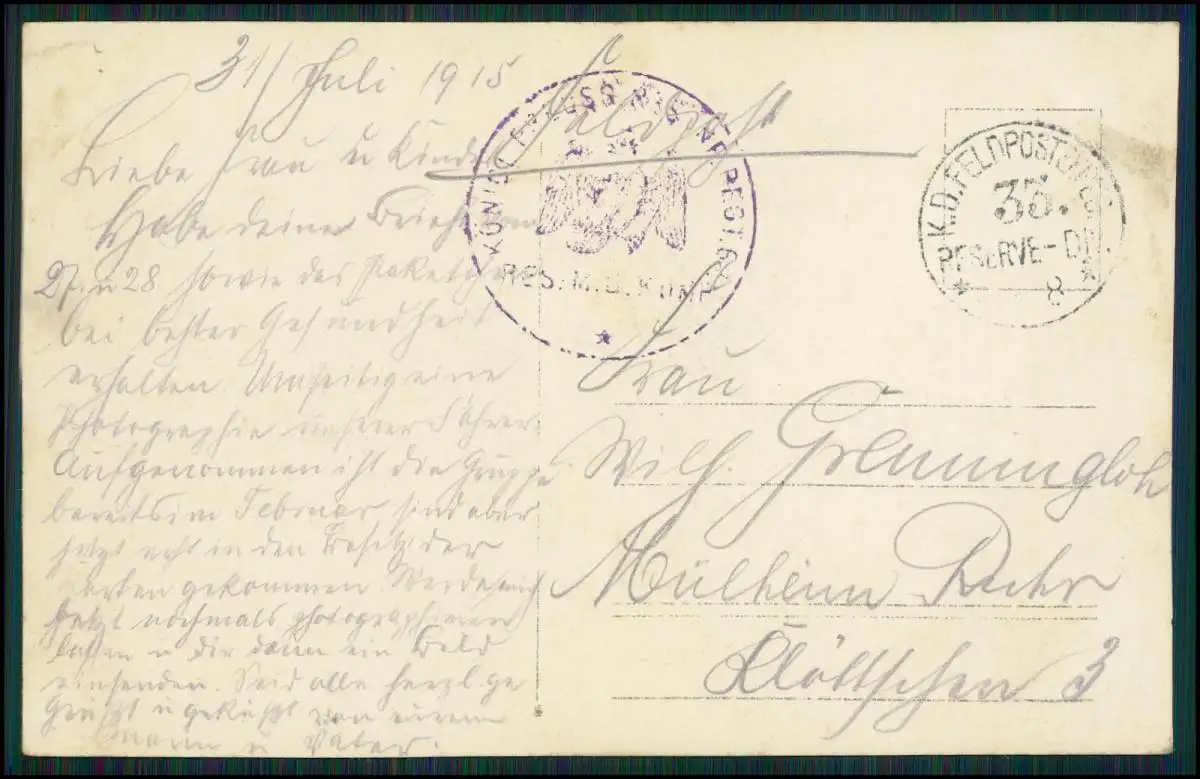 31/ Juli 1915
Feldpost
Liebe Frau u Kinder
Habe deine Briefe vom
27 u 28. sowie das Paketchen
bei bester Gesundheit
erhalten. Umseitig eine
Photographie unserer Fahrer.
Aufgenommen ist die Gruppe
bereits im Februar sind aber
jetzt erst in den Besitz der
Karten gekommen. Werde mich
jetzt nochmals photographieren
lassen u Dir dann ein Bild
einsenden. Seid alle herzl. ge
grüßt u geküßt von eurem
Mann u Vater.
KÖNIGL. PREUSS. RES. INF. REGT.
RES. M.G. KOMP.
K.D. FELDPOSTEXPED.
35.
RESERVE-DIV.
* 8 *
Frau
Wilh.
Mülheim Ruhr
Klöttschen 3